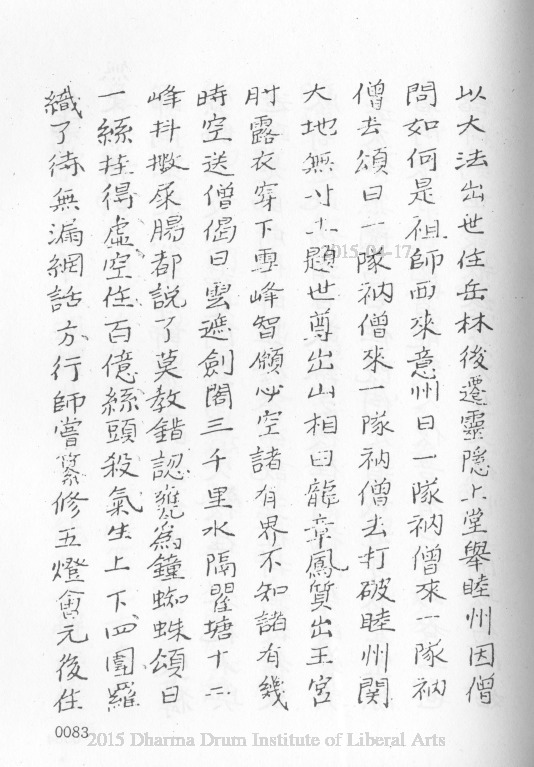 以大法出世住岳林後遷靈隱上堂舉睦州因僧
問如何是祖師西來意州曰一隊衲僧來一隊衲
僧去頌曰一隊衲僧來一隊衲僧去打破睦州關
大地無寸土題世尊出山相曰龍章鳳質出王宮
肘露衣穿下雪峰智願必空諸有界不知諸有幾
時空送僧偈曰雲遮劍閣三千里水隔瞿塘十二
峰抖擻屎腸都說了莫教錯認甕為鐘蜘蛛頌曰
一絲挂得虛空住百億絲頭殺氣生上下四圍羅
織了待無漏網話方行師嘗纂修五燈會元後住
0083
2015-04-17
2015 Dharma Drum Institute of Liberal Arts